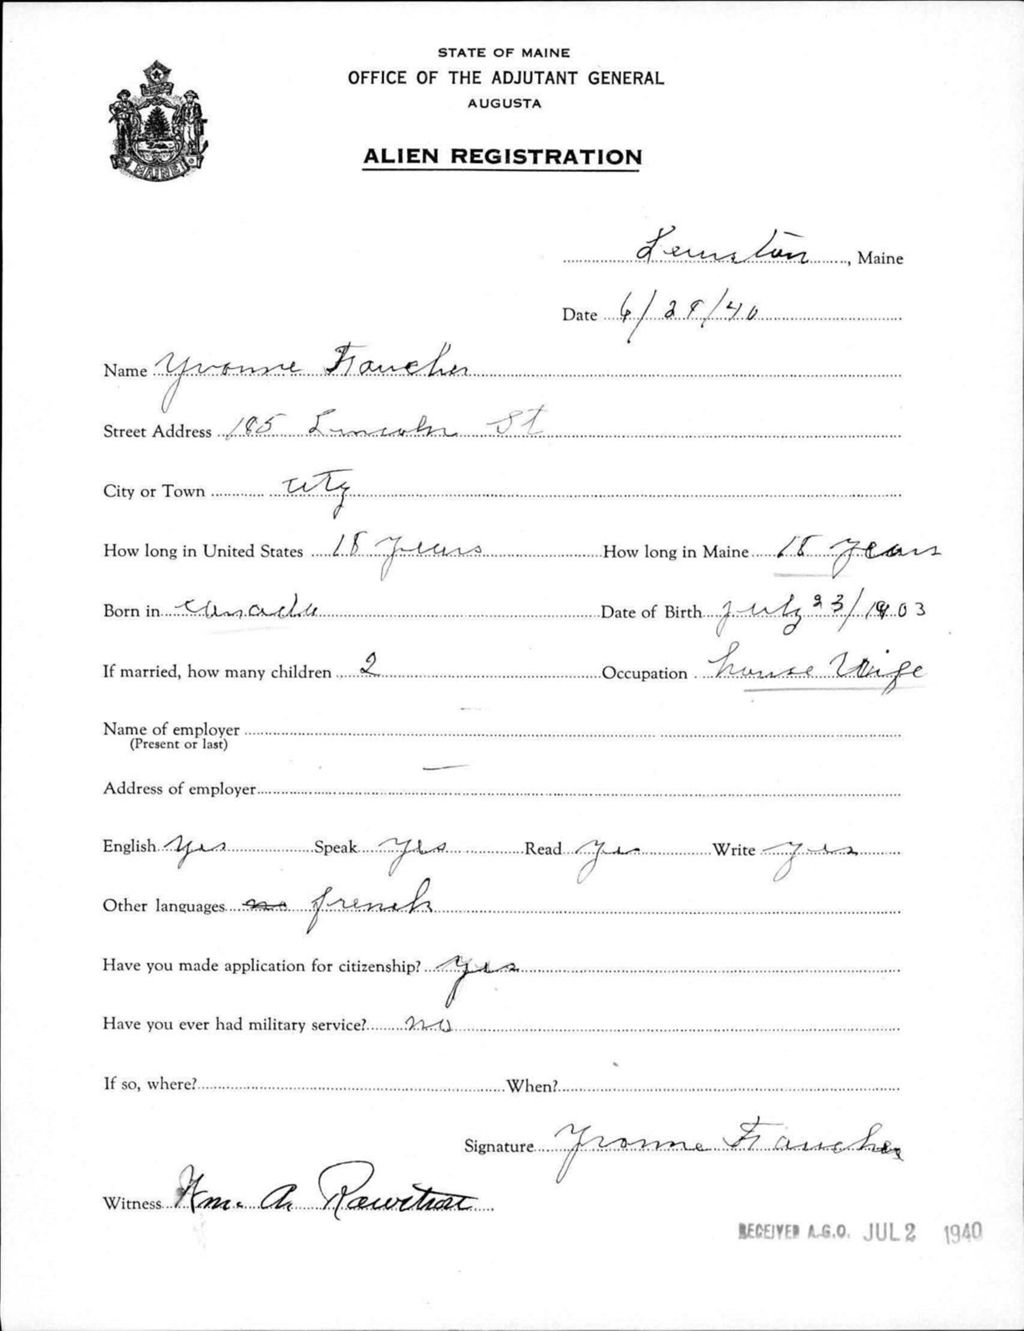 STATE OF MAINE
OFFICE OF THE ADJUTANT GENERAL
AUGUSTA
ALIEN REGISTRATION
MAINE
Lewiston, Maine
Date 6/29/40
Name Yvonne Faucher
Street Address 185 Lincoln St
City or Town city
How long in United States 18 years How long in Maine 18 years
Born in Canada Date of Birth July 23/1903
If married, how many children 2 Occupation house Wife
Name of employer —
(Present or last)
Address of employer —
English Yes Speak Yes Read Yes Write yes
Other languages no french
Have you made application for citizenship? Yes
Have you ever had military service? no
If so, where? When?
Signature Yvonne Faucher
Witness Wm. A.
RECEIVED A.G.O. JUL 2 1940